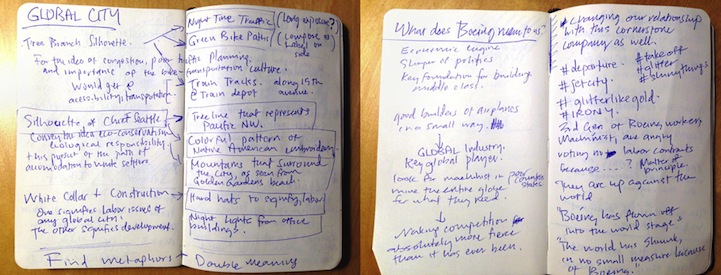 GLOBAL CITY
Tree Branch Silhouette.
For the idea of congestion, poor traffic planning.
and importance of the bike transportation culture.
Would get @
accessibility, transportation.
Silhouette of Chief Seattle
Convey the idea eco-conservation,
ecological responsibility,
this pursuit of the
accomodation to white settlers
White Collar + Construction
One signifies labor issues of
any global city.
The other signifies development.
Find metaphors
Night Time Traffic (Long exposure?)
Green Bike Paths (compose on
label on
side
Train Tracks. along 15th
@ Train depot avenue.
Tree line that represents
Pacific NW.
Colorful pattern of
Native American embroidery
Mountains that surround
the City, as seen from
Golden Gardens beach.
Hard hats to signify labor
Night lights from office
buildings.
Double meaning
What does Boeing mean to us?
Economic engine
Shaper of politics
Key foundation for building
middle class.
good builders of airplanes
in a small way.
GLOBAL Industry.
Key global player.
looks for machinist in
the entire globe
for what they need.
Making competition
absolutely more fierce
than it has ever been.
# changing our relationship
with this cornerstone
company as well.
# departure. # takeoff
# jetcity # glitter
# shinythings
# glitterlikegold.
# IRONY.
3rd Gen of Boeing workers
Machinist, are angry
voting no labor contracts
because....? Matter of
principle.
They are up against the
world
"Boeing has flown off
into the world stage"
"The world has shrunk,
in no small measure because
of Boeing."